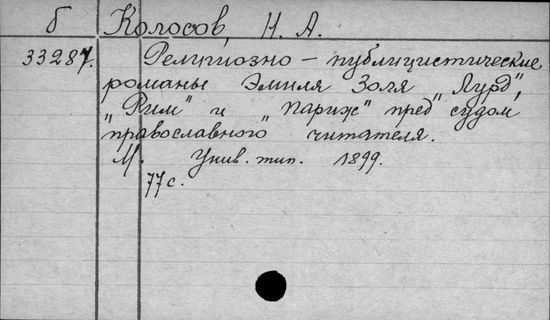 б Колосов, Н. А.
33287. Религиозно - публицистические
романы Эмиля Золя "Лурд",
"Рим" и "Париж" пред судом
православного читателя.
М. Унив. тип. 1899.
77 с.